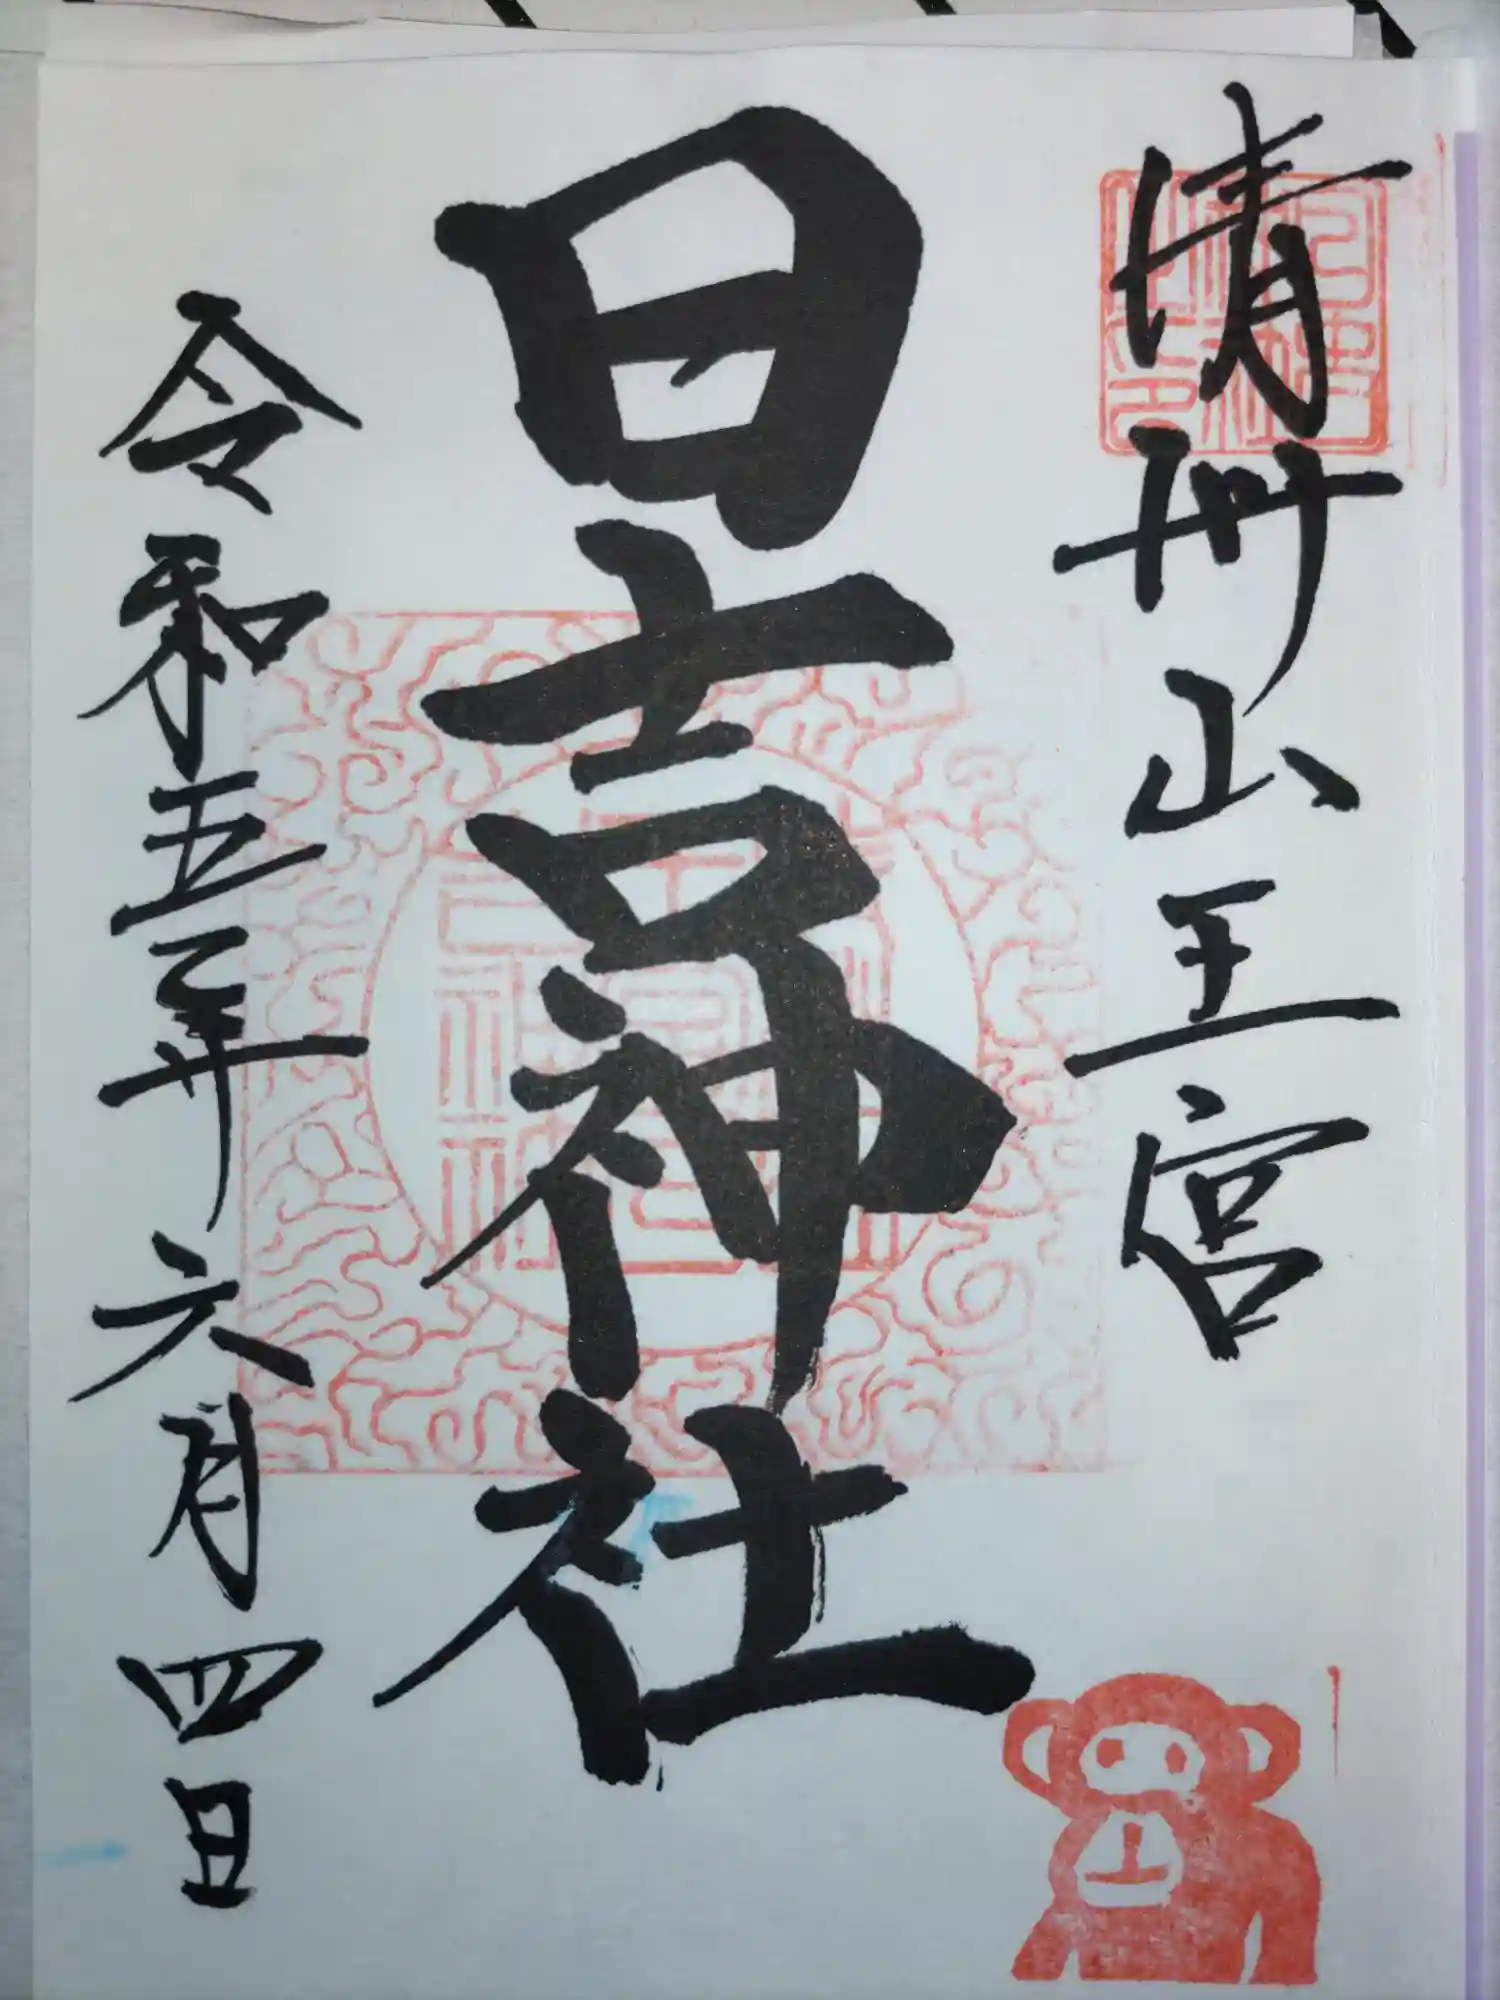 清洲山王宮
日吉神社
令和五年六月四日